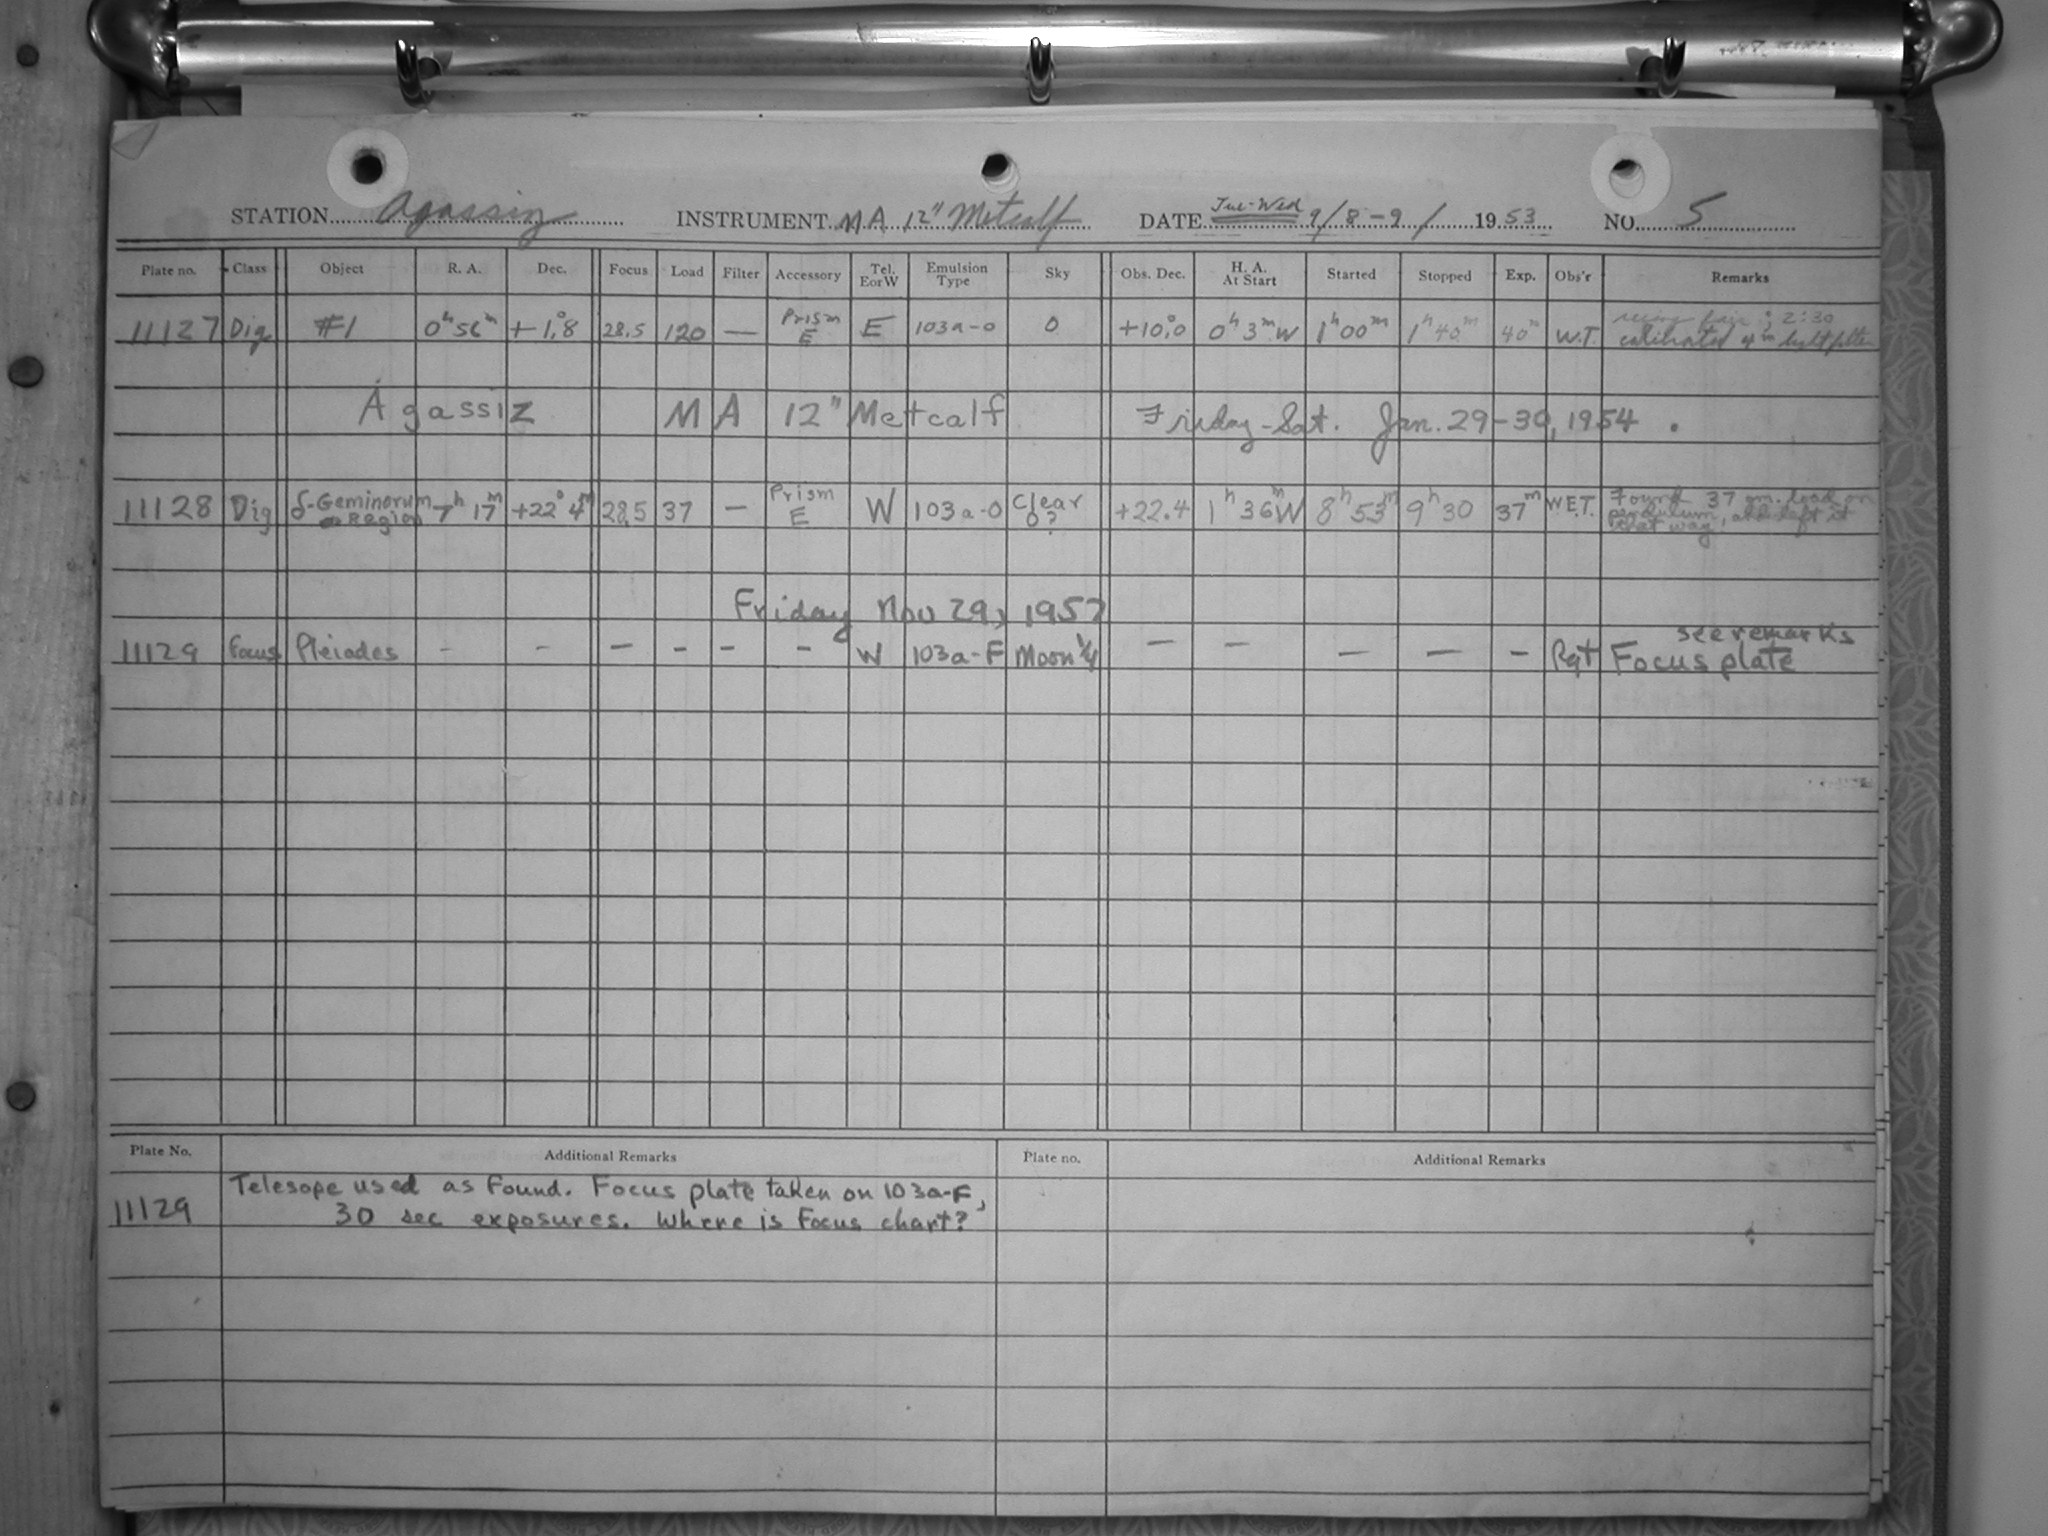 STATION Agassiz INSTRUMENT MA 12" Metcalf DATE Tue-Wed 9/8-9/ 1953 NO. 5
Plate no. Class Object R. A. Dec. Focus Load Filter Accessory Tel. E or W Emulsion Type Sky Obs. Dec. H. A. At Start Started Stopped Exp. Obs'r Remarks
11127 Dig #1 0h 56m +1°.8 28.5 120 — Prism E E 103a-O 0 +10°.0 0h 3m W 1h 00m 1h 40m 40m W.T. fair ; 2:30
calibrated
Agassiz MA 12" Metcalf Friday-Sat. Jan. 29-30, 1954.
11128 Dig δ-Geminorum Region 7h 17m +22° 4m 28.5 37 — Prism E W 103a-O Clear 0? +22.4 1h 36m W 8h 53m 9h 30 37m W.E.T. Found 37 gm. load on
pendulum, and left it
that way
Friday Nov 29, 1957
see remarks
11129 Focus Pleiades - - — - - - W 103a-F Moon 1/4 — — — — — Pqt Focus plate
Plate No. Additional Remarks Plate no. Additional Remarks
11129 Telesope used as found. Focus plate taken on 103a-F,
30 sec exposures. Where is focus chart?